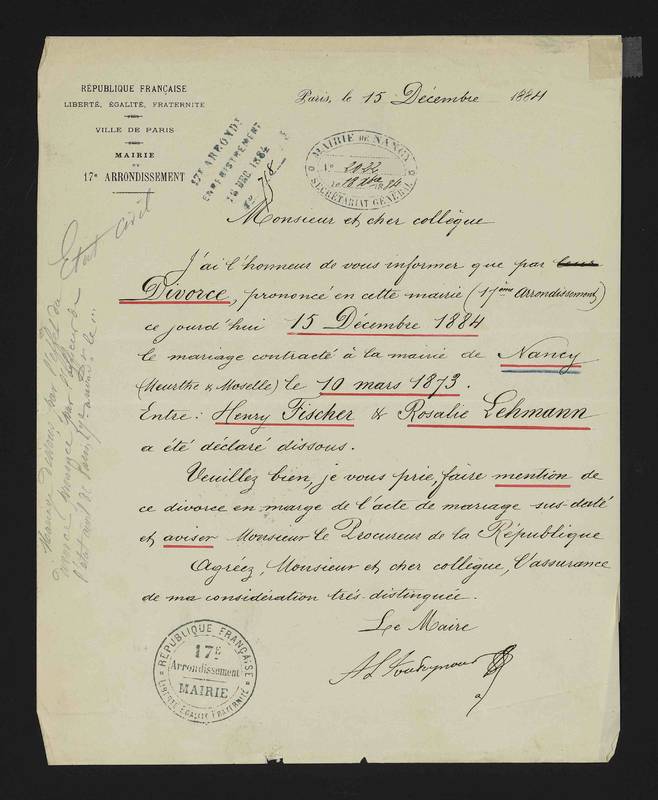 RÉPUBLIQUE FRANÇAISE
LIBERTÉ, ÉGALITÉ, FRATERNITÉ
VILLE DE PARIS
MAIRIE
DU
17e ARRONDISSEMENT
Paris, le 15 Décembre 1884
17e ARRONDt
ENREGISTREMENT
16 DEC 1884
No 718
MAIRIE DE NANCY
No 2022
le 18 Xbre 1884
SECRÉTARIAT GÉNÉRAL
Etat civil
Mariage dissous par l'effet du
divorce prononcé par l'officier de
l'état civil de Paris, 17e arrondt le ...
Monsieur et cher collègue
J'ai l'honneur de vous informer que par
Divorce, prononcé en cette mairie (17ème Arrondissement)
ce jourd'hui 15 Décembre 1884
le mariage contracté à la mairie de Nancy
(Meurthe & Moselle) le 10 mars 1873.
Entre : Henry Fischer & Rosalie Lehmann
a été déclaré dissous.
Veuillez bien, je vous prie, faire mention de
ce divorce en marge de l'acte de mariage sus-daté
et aviser Monsieur le Procureur de la République
Agréez, Monsieur et cher collègue, l'assurance
de ma considération très-distinguée.
Le Maire
RÉPUBLIQUE FRANÇAISE
17E
Arrondissement
MAIRIE
LIBERTÉ ÉGALITÉ FRATERNITÉ